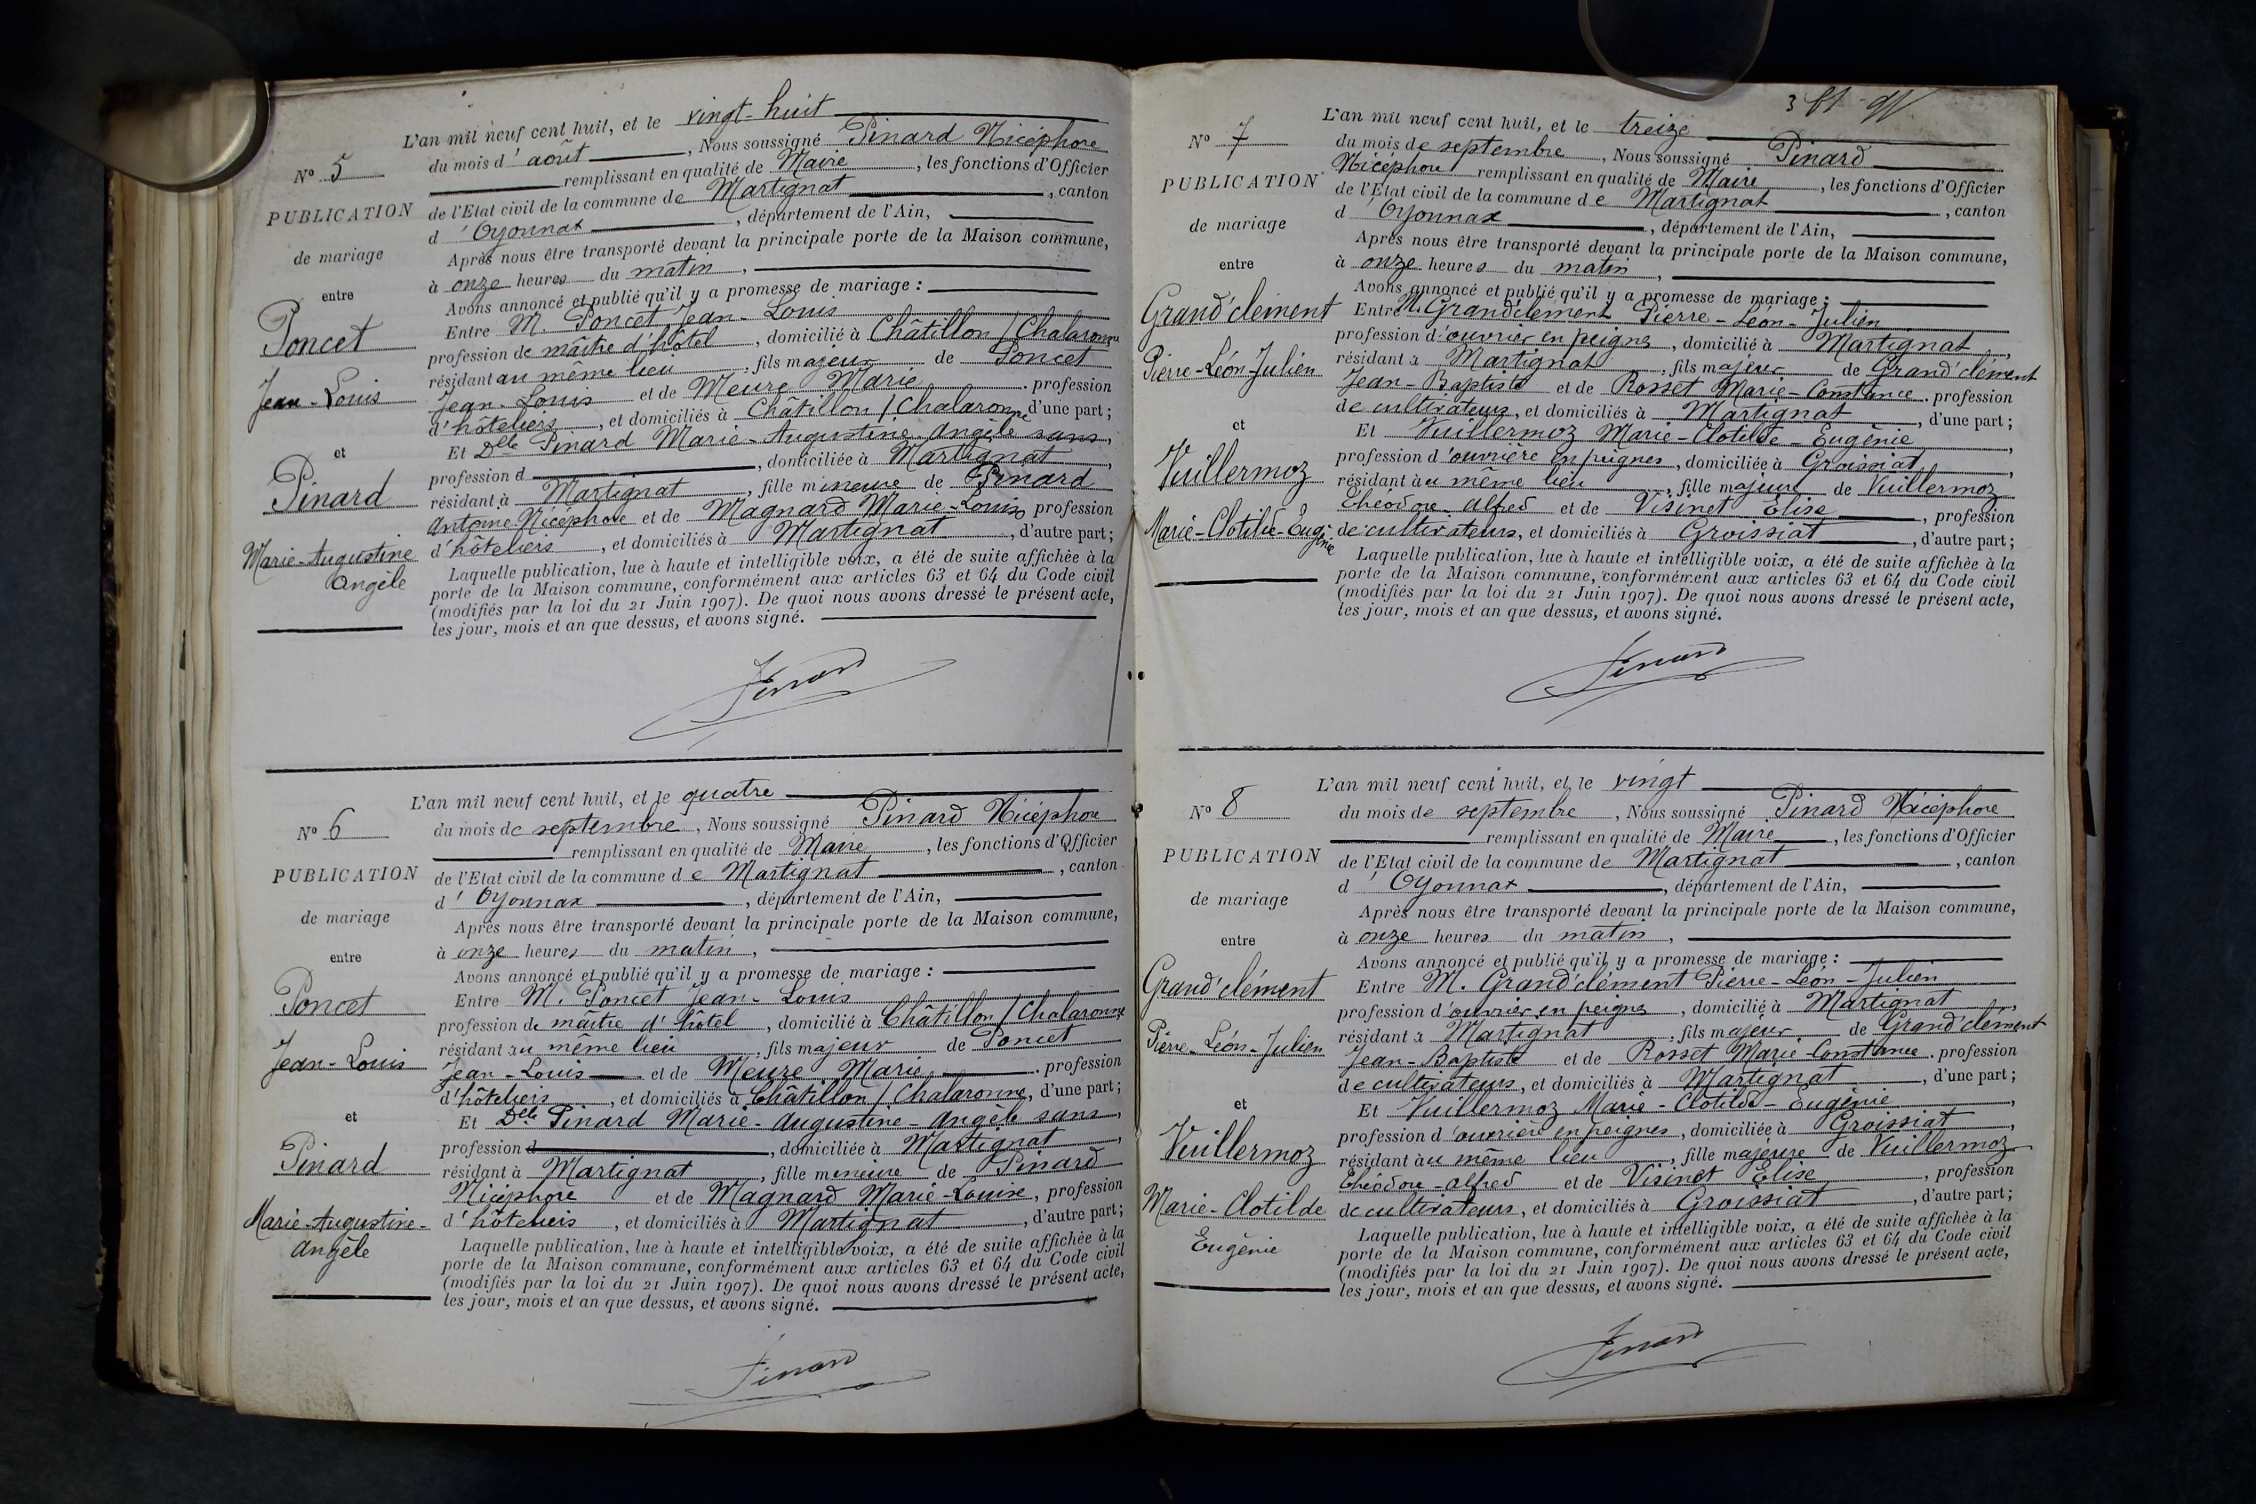 L'an mil neuf cent huit, et le vingt-huit
N° 5 du mois d'août, Nous soussigné Pinard Nicéphore
remplissant en qualité de Maire, les fonctions d'Officier
PUBLICATION de l'Etat civil de la commune de Martignat, canton
d'Oyonnax, département de l'Ain,
de mariage Après nous être transporté devant la principale porte de la Maison commune,
à onze heures du matin,
entre Avons annoncé et publié qu'il y a promesse de mariage :
Poncet Entre M. Poncet Jean-Louis
profession de maître d'hôtel, domicilié à Châtillon / Chalaronne
Jean-Louis résidant au même lieu, fils majeur de Poncet
Jean-Louis et de Meure Marie, profession
d'hôteliers, et domiciliés à Châtillon / Chalaronne d'une part ;
et Et Delle Pinard Marie-Augustine-Angèle sans,
profession d, domiciliée à Martignat,
Pinard résidant à Martignat, fille mineure de Pinard
Antoine Nicéphore et de Magnard Marie-Louise, profession
Marie-Augustine d'hôteliers, et domiciliés à Martignat, d'autre part ;
Angèle Laquelle publication, lue à haute et intelligible voix, a été de suite affichée à la
porte de la Maison commune, conformément aux articles 63 et 64 du Code civil
(modifiés par la loi du 21 Juin 1907). De quoi nous avons dressé le présent acte,
les jour, mois et an que dessus, et avons signé.
Pinard
L'an mil neuf cent huit, et le quatre
N° 6 du mois de septembre, Nous soussigné Pinard Nicéphore
remplissant en qualité de Maire, les fonctions d'Officier
PUBLICATION de l'Etat civil de la commune de Martignat, canton
d'Oyonnax, département de l'Ain,
de mariage Après nous être transporté devant la principale porte de la Maison commune,
entre à onze heures du matin,
Avons annoncé et publié qu'il y a promesse de mariage :
Poncet Entre M. Poncet Jean-Louis
profession de maître d'hôtel, domicilié à Châtillon / Chalaronne
Jean-Louis résidant au même lieu, fils majeur de Poncet
Jean-Louis et de Meure Marie, profession
d'hôteliers, et domiciliés à Châtillon / Chalaronne, d'une part ;
et Et Delle Pinard Marie-Augustine-Angèle sans,
profession d, domiciliée à Martignat,
Pinard résidant à Martignat, fille mineure de Pinard
Nicéphore et de Magnard Marie-Louise, profession
Marie-Augustine- d'hôteliers, et domiciliés à Martignat, d'autre part ;
Angèle Laquelle publication, lue à haute et intelligible voix, a été de suite affichée à la
porte de la Maison commune, conformément aux articles 63 et 64 du Code civil
(modifiés par la loi du 21 Juin 1907). De quoi nous avons dressé le présent acte,
les jour, mois et an que dessus, et avons signé.
Pinard
L'an mil neuf cent huit, et le treize
N° 7 du mois de septembre, Nous soussigné Pinard
Nicéphore remplissant en qualité de Maire, les fonctions d'Officier
PUBLICATION de l'Etat civil de la commune de Martignat, canton
d'Oyonnax, département de l'Ain,
de mariage Après nous être transporté devant la principale porte de la Maison commune,
entre à onze heures du matin,
Avons annoncé et publié qu'il y a promesse de mariage :
Grand'clément Entre M. Grand'clément Pierre-Léon-Julien
profession d'ouvrier en peignes, domicilié à Martignat,
Pierre-Léon-Julien résidant à Martignat, fils majeur de Grand'clément
Jean-Baptiste et de Rosset Marie-Constance, profession
de cultivateurs, et domiciliés à Martignat, d'une part ;
et Et Vuillermoz Marie-Clotilde-Eugénie
profession d'ouvrière en peignes, domiciliée à Groissiat,
Vuillermoz résidant au même lieu, fille majeure de Vuillermoz
Théodore-Alfred et de Visinet Elise, profession
Marie-Clotilde-Eugénie de cultivateurs, et domiciliés à Groissiat, d'autre part ;
Laquelle publication, lue à haute et intelligible voix, a été de suite affichée à la
porte de la Maison commune, conformément aux articles 63 et 64 du Code civil
(modifiés par la loi du 21 Juin 1907). De quoi nous avons dressé le présent acte,
les jour, mois et an que dessus, et avons signé.
Pinard
L'an mil neuf cent huit, et le vingt
N° 8 du mois de septembre, Nous soussigné Pinard Nicéphore
remplissant en qualité de Maire, les fonctions d'Officier
PUBLICATION de l'Etat civil de la commune de Martignat, canton
d'Oyonnax, département de l'Ain,
de mariage Après nous être transporté devant la principale porte de la Maison commune,
entre à onze heures du matin,
Avons annoncé et publié qu'il y a promesse de mariage :
Grand'clément Entre M. Grand'clément Pierre-Léon-Julien
profession d'ouvrier en peignes, domicilié à Martignat,
Pierre-Léon-Julien résidant à Martignat, fils majeur de Grand'clément
Jean-Baptiste et de Rosset Marie-Constance, profession
de cultivateurs, et domiciliés à Martignat, d'une part ;
et Et Vuillermoz Marie-Clotilde-Eugénie,
profession d'ouvrière en peignes, domiciliée à Groissiat,
Vuillermoz résidant au même lieu, fille majeure de Vuillermoz
Théodore-Alfred et de Visinet Elise, profession
Marie-Clotilde de cultivateurs, et domiciliés à Groissiat, d'autre part ;
Eugénie Laquelle publication, lue à haute et intelligible voix, a été de suite affichée à la
porte de la Maison commune, conformément aux articles 63 et 64 du Code civil
(modifiés par la loi du 21 Juin 1907). De quoi nous avons dressé le présent acte,
les jour, mois et an que dessus, et avons signé.
Pinard